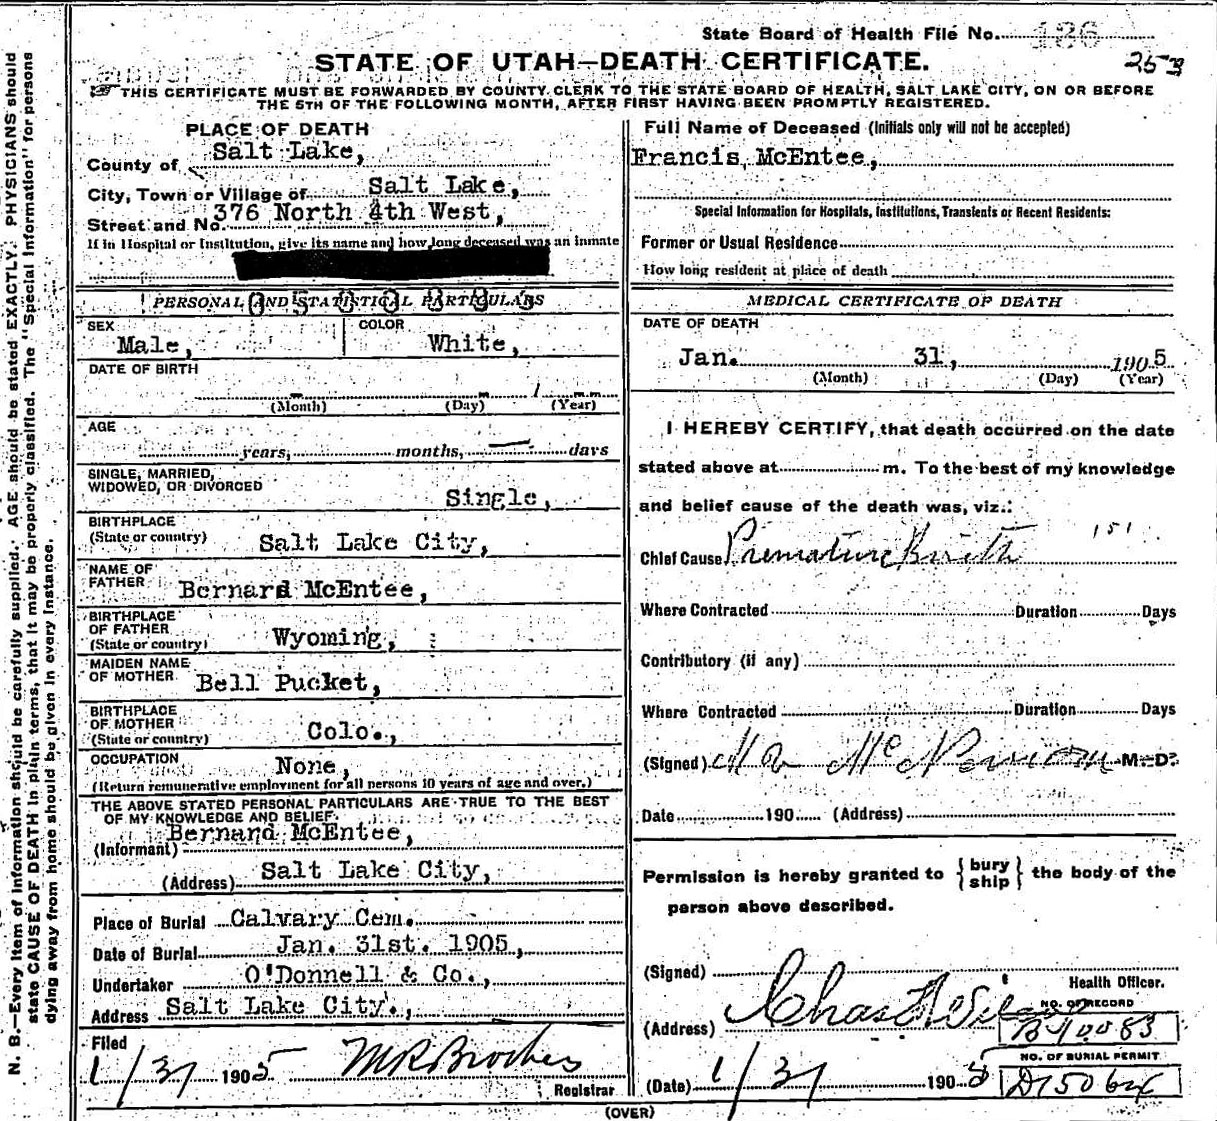 State Board of Health File No. 186
STATE OF UTAH—DEATH CERTIFICATE.
THIS CERTIFICATE MUST BE FORWARDED BY COUNTY CLERK TO THE STATE BOARD OF HEALTH, SALT LAKE CITY, ON OR BEFORE
THE 5TH OF THE FOLLOWING MONTH, AFTER FIRST HAVING BEEN PROMPTLY REGISTERED.
N. B.—Every item of information should be carefully supplied. AGE should be stated EXACTLY. PHYSICIANS should
state CAUSE OF DEATH in plain terms, that it may be properly classified. The "Special Information" for persons
dying away from home should be given in every instance.
PLACE OF DEATH
County of Salt Lake,
City, Town or Village of Salt Lake,
Street and No. 376 North 4th West,
If in Hospital or Institution, give its name and how long deceased was an inmate
PERSONAL AND STATISTICAL PARTICULARS
SEX Male,
COLOR White,
DATE OF BIRTH
(Month) (Day) 1 (Year)
AGE
years, months, days
SINGLE, MARRIED,
WIDOWED, OR DIVORCED Single,
BIRTHPLACE
(State or country) Salt Lake City,
NAME OF
FATHER Bernard McEntee,
BIRTHPLACE
OF FATHER
(State or country) Wyoming,
MAIDEN NAME
OF MOTHER Bell Pucket,
BIRTHPLACE
OF MOTHER
(State or country) Colo.,
OCCUPATION None,
(Return remunerative employment for all persons 10 years of age and over.)
THE ABOVE STATED PERSONAL PARTICULARS ARE TRUE TO THE BEST
OF MY KNOWLEDGE AND BELIEF.
(Informant) Bernard McEntee,
(Address) Salt Lake City,
Place of Burial Calvary Cem.
Date of Burial Jan. 31st. 1905,
Undertaker O'Donnell & Co.,
Address Salt Lake City.,
Filed
1/31 1905
Registrar
Full Name of Deceased (Initials only will not be accepted)
Francis McEntee,
Special Information for Hospitals, Institutions, Transients or Recent Residents:
Former or Usual Residence
How long resident at place of death
MEDICAL CERTIFICATE OF DEATH
DATE OF DEATH
Jan. 31, 1905
(Month) (Day) (Year)
I HEREBY CERTIFY, that death occurred on the date
stated above at m. To the best of my knowledge
and belief cause of the death was, viz.:
Chief Cause Premature Birth 151
Where Contracted Duration Days
Contributory (if any)
Where Contracted Duration Days
(Signed) M.D.
Date 190 (Address)
Permission is hereby granted to { bury ship } the body of the
person above described.
(Signed)
Health Officer.
(Address)
NO. OF RECORD
(Date) 1/31 1905
NO. OF BURIAL PERMIT
(OVER)